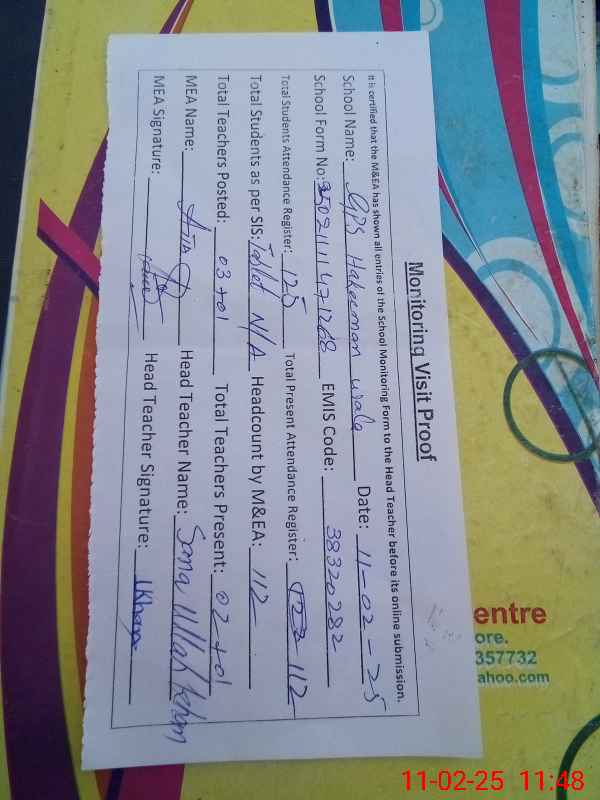 Monitoring Visit Proof
It is certified that the M&EA has shown all entries of the School Monitoring Form to the Head Teacher before its online submission.
School Name: GPS Hakeeman wala Date: 11-02-25
School Form No: 2502111471268 EMIS Code: 38320282
Total Students Attendance Register: 125 Total Present Attendance Register: 112
Total Students as per SIS: Tablet N/A Headcount by M&EA: 112
Total Teachers Posted: 03+01 Total Teachers Present: 02+01
MEA Name: Head Teacher Name: Sana Ullah Khan
MEA Signature: Head Teacher Signature: Khan
entre
ore.
357732
ahoo.com
11-02-25 11:48